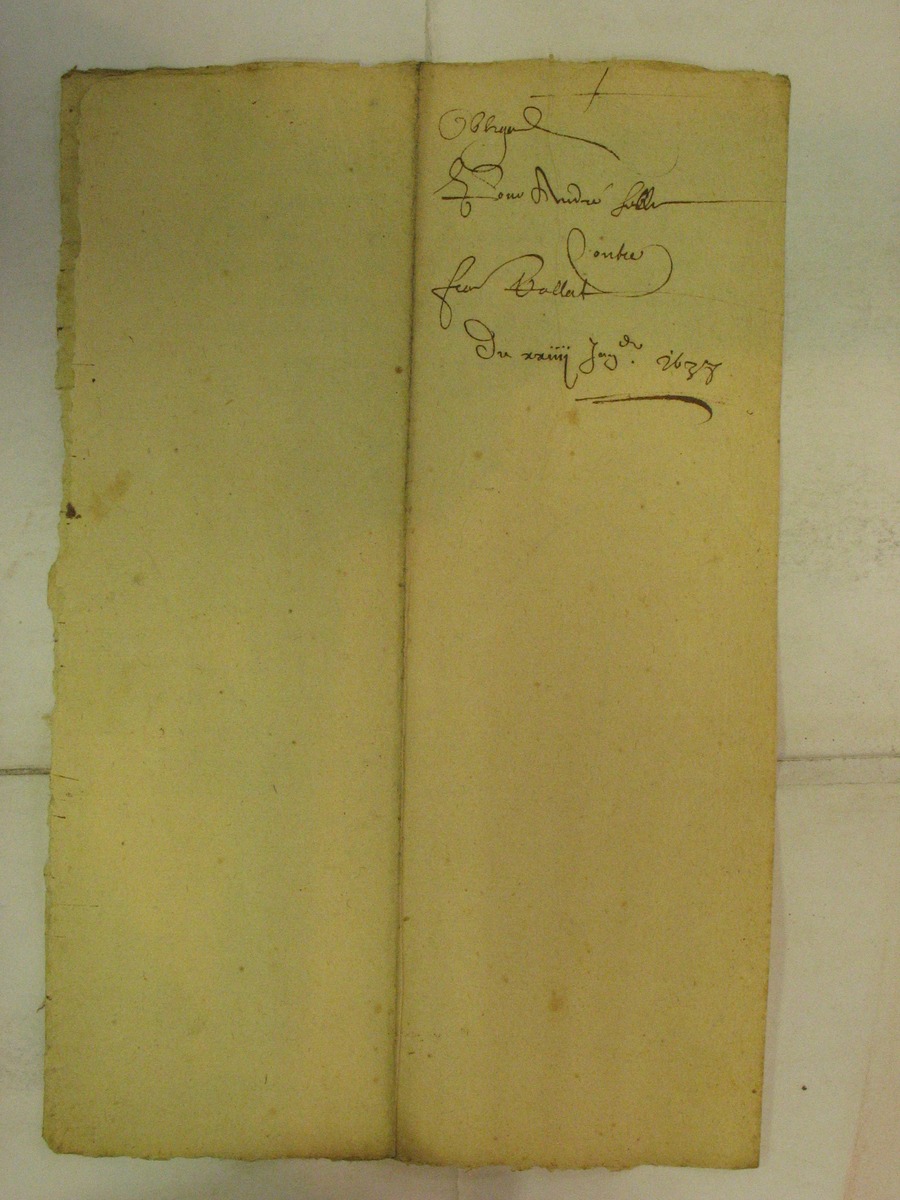 Obliga
Pour André
Contre
Jean Vallat
Du xxiiij Jan 1637